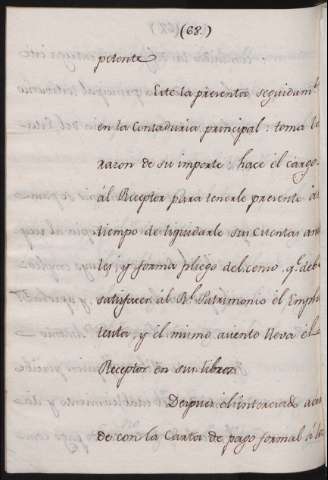 (68.)
petente.
Este la presenta seguidam.te
en la Contaduria principal: toma la
razon de su importe: hace el cargo
al Receptor para tenerle presente al
tiempo de liquidarle sus Cuentas an
les, y forma pliego del como, q.e debe
satisfacer al R.l Patrimonio el Emphi
teuta, y el mismo asiento lleva el
Receptor en sus libros.
Despues el interesado acu
de con la Carta de pago formal á la